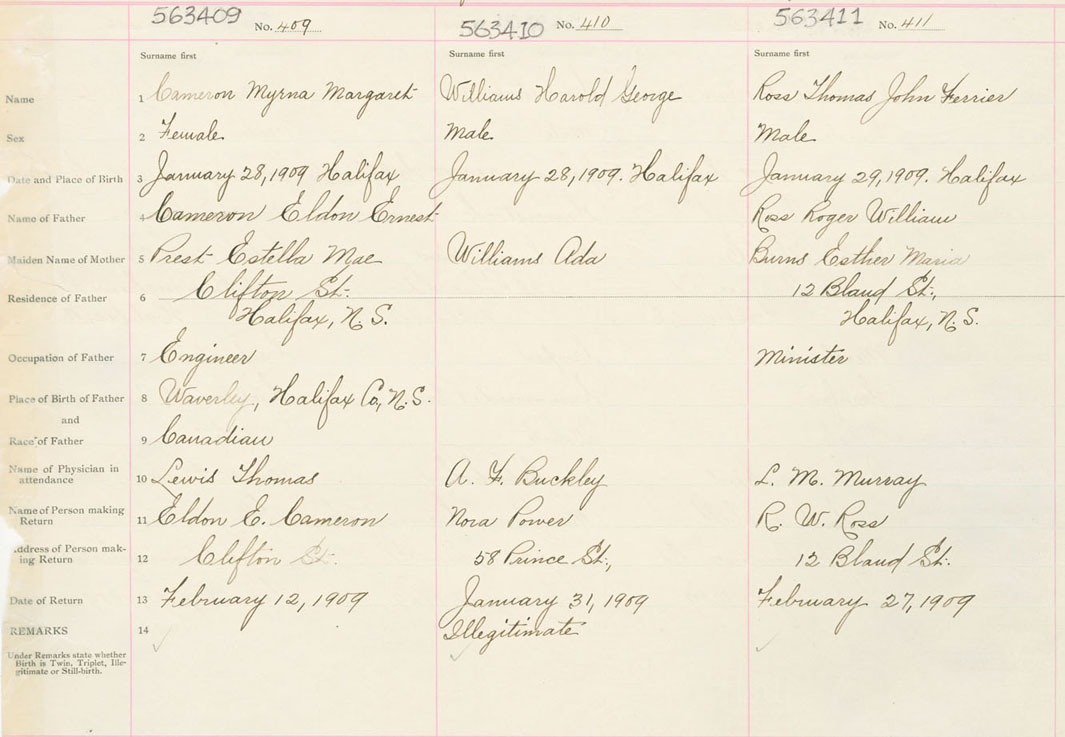 563409 No. 409 563410 No. 410 563411 No. 411
Surname first Surname first Surname first
Name 1 Cameron Myrna Margaret Williams Harold George Ross Thomas John Ferrier
Sex 2 Female Male Male
Date and Place of Birth 3 January 28, 1909 Halifax January 28, 1909. Halifax January 29, 1909. Halifax
Name of Father 4 Cameron Eldon Ernest Ross Roger William
Maiden Name of Mother 5 Prest Estella Mae Williams Ada Burns Esther Maria
Residence of Father 6 Clifton St. 12 Bland St.,
Halifax, N.S. Halifax, N.S.
Occupation of Father 7 Engineer Minister
Place of Birth of Father 8 Waverley, Halifax Co, N.S.
and
Race of Father 9 Canadian
Name of Physician in
attendance 10 Lewis Thomas A. F. Buckley L. M. Murray
Name of Person making
Return 11 Eldon E. Cameron Nora Power R. W. Ross
ddress of Person mak-
ing Return 12 Clifton St. 58 Prince St., 12 Bland St.
Date of Return 13 February 12, 1909 January 31, 1909 February 27, 1909
REMARKS 14 Illegitimate
Under Remarks state whether
Birth is Twin, Triplet, Ille-
gitimate or Still-birth.